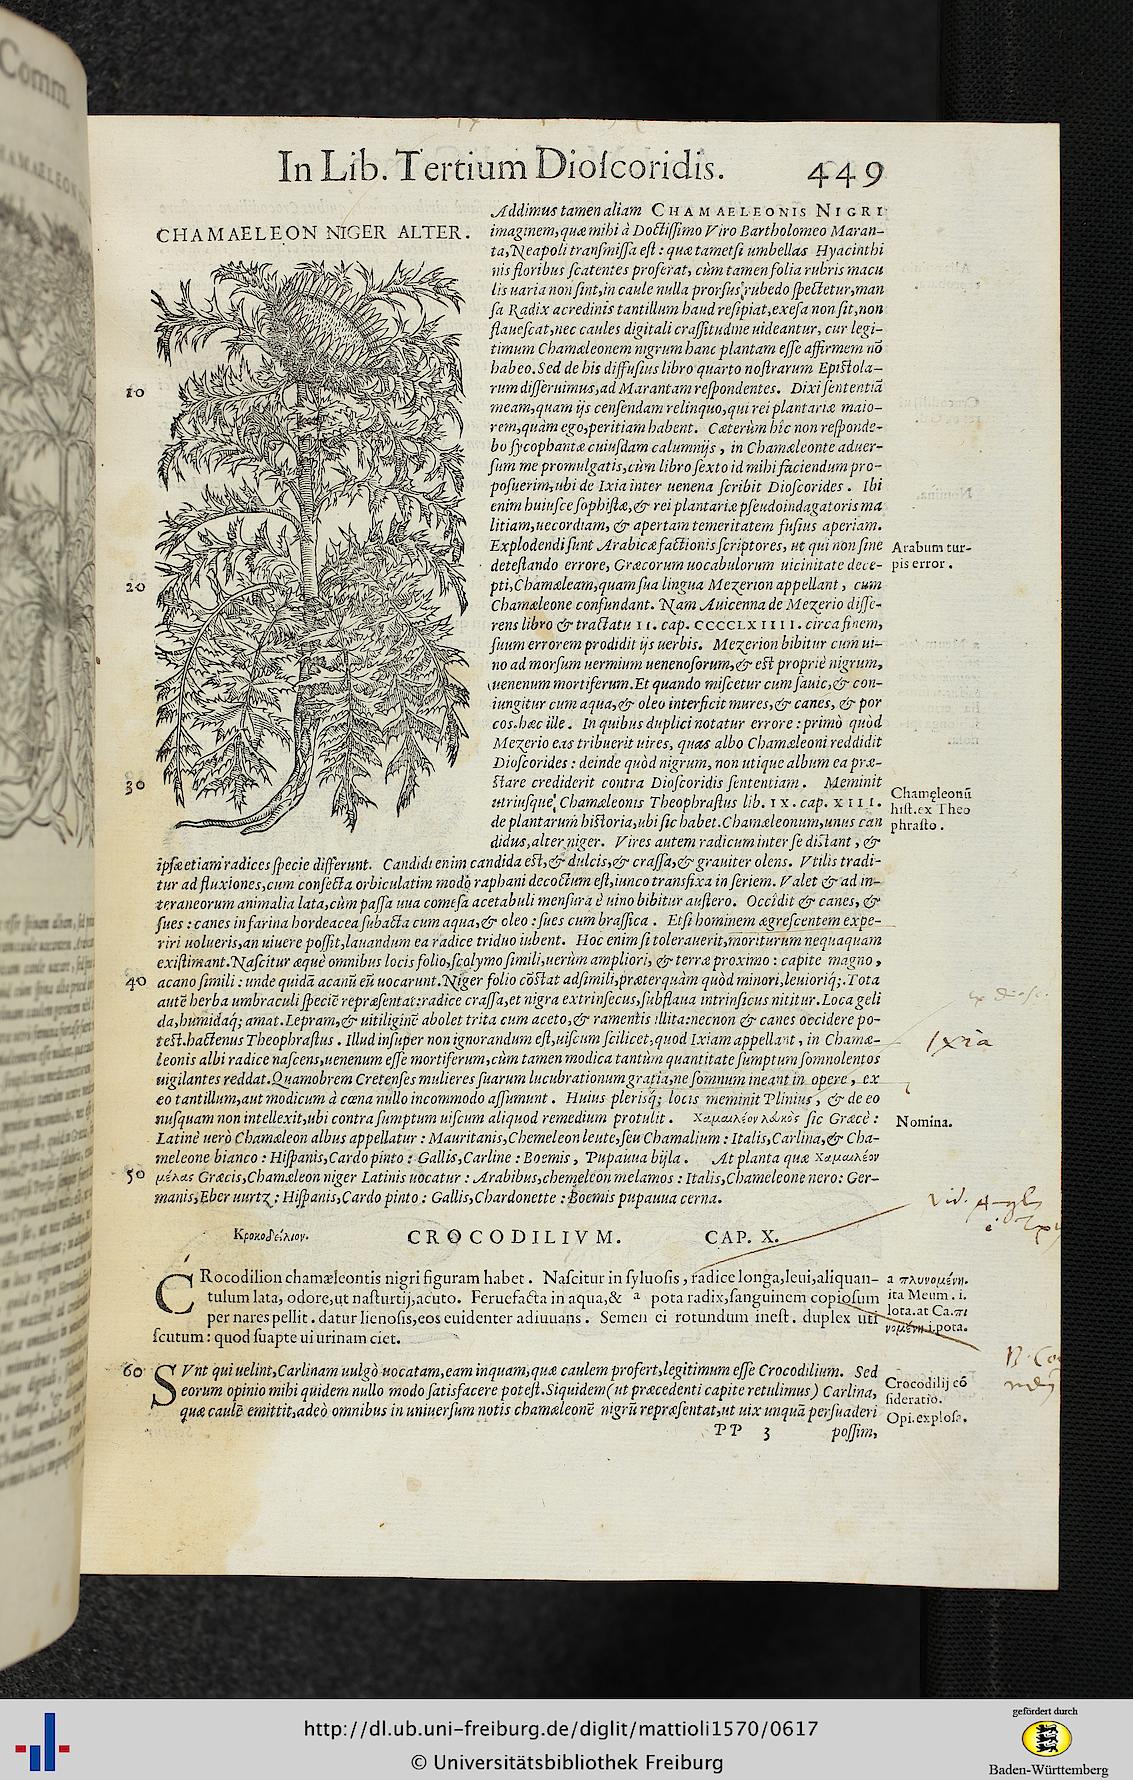 Comm.
In Lib. Tertium Dioſcoridis. 449
CHAMAELEON NIGER ALTER.
Addimus tamen aliam CHAMAELEONIS NIGRI
imaginem,quæ mihi à Doctiſſimo Viro Bartholomeo Maran-
ta,Neapoli tranſmiſſa eſt : quæ tametſi umbellas Hyacinthi
nis floribus ſcatentes proferat, cùm tamen folia rubris macu
lis uaria non ſint,in caule nulla prorſus rubedo ſpectetur,man
ſa Radix acredinis tantillum haud reſipiat,exeſa non ſit,non
flaueſcat,nec caules digitali craſſitudine uideantur, cur legi-
timum Chamæleonem nigrum hanc plantam eſſe affirmem nō
habeo.Sed de his diffuſius libro quarto noſtrarum Epiſtola-
10
rum diſſeruimus,ad Marantam reſpondentes. Dixi ſententiā
meam,quam ijs cenſendam relinquo,qui rei plantariæ maio-
rem,quàm ego,peritiam habent. Cæterùm hîc non reſponde-
bo ſycophantæ cuiuſdam calumnijs , in Chamæleonte aduer-
ſum me promulgatis,cùm libro ſexto id mihi faciendum pro-
poſuerim,ubi de Ixia inter uenena ſcribit Dioſcorides . Ibi
enim huiuſce ſophiſtæ,& rei plantariæ pſeudoindagatoris ma
litiam,uecordiam, & apertam temeritatem fuſius aperiam.
Explodendi ſunt Arabicæ factionis ſcriptores, ut qui non ſine
Arabum tur-
deteſtando errore, Græcorum uocabulorum uicinitate dece-
pis error .
20
pti,Chamæleam,quam ſua lingua Mezerion appellant , cum
Chamæleone confundant. Nam Auicenna de Mezerio diſſe-
rens libro & tractatu II. cap. CCCCLXIIII. circa finem,
ſuum errorem prodidit ijs uerbis. Mezerion bibitur cum ui-
no ad morſum uermium uenenoſorum,& eſt propriè nigrum,
uenenum mortiferum.Et quando miſcetur cum ſauic,& con-
iungitur cum aqua,& oleo interficit mures,& canes, & por
cos.hæc ille. In quibus duplici notatur errore : primò quòd
Mezerio eas tribuerit uires, quas albo Chamæleoni reddidit
Dioſcorides : deinde quòd nigrum, non utique album ea præ-
30
ſtare crediderit contra Dioſcoridis ſententiam. Meminit
Chamęleonū
utriuſque Chamæleonis Theophraſtus lib. IX. cap. XIII.
hiſt.ex Theo
de plantarum hiſtoria,ubi ſic habet.Chamæleonum,unus can
phraſto .
didus,alter niger. Vires autem radicum inter ſe diſtant , &
ipſæ etiam radices ſpecie differunt. Candidi enim candida eſt,& dulcis,& craſſa,& grauiter olens. Vtilis tradi-
tur ad fluxiones,cum conſecta orbiculatim modo raphani decoctum eſt,iunco transfixa in ſeriem. Valet & ad in-
teraneorum animalia lata,cùm paſſa uua comeſa acetabuli menſura è uino bibitur auſtero. Occidit & canes, &
ſues : canes in farina hordeacea ſubacta cum aqua,& oleo : ſues cum braſſica . Etſi hominem ægreſcentem expe-
riri uolueris,an uiuere poſſit,lauandum ea radice triduo iubent. Hoc enim ſi tolerauerit,moriturum nequaquam
exiſtimant.Naſcitur æquè omnibus locis folio,ſcolymo ſimili,uerùm ampliori, & terræ proximo : capite magno ,
40 acano ſimili : unde quidā acanū eū uocarunt.Niger folio cōſtat adſimili,præterquàm quòd minori,leuioriq;.Tota
autē herba umbraculi ſpeciē repræſentat:radice craſſa,et nigra extrinſecus,ſubflaua intrinſicus nititur.Loca geli
da,humidaq; amat.Lepram,& uitiliginē abolet trita cum aceto,& ramentis illita:necnon & canes occidere po-
teſt.hactenus Theophraſtus . Illud inſuper non ignorandum eſt,uiſcum ſcilicet,quod Ixiam appellant , in Chamæ-
Ixia
leonis albi radice naſcens,uenenum eſſe mortiferum,cùm tamen modica tantùm quantitate ſumptum ſomnolentos
uigilantes reddat.Quamobrem Cretenſes mulieres ſuarum lucubrationum gratia,ne ſomnum ineant in opere , ex
eo tantillum,aut modicum à cœna nullo incommodo aſſumunt . Huius pleriſq; locis meminit Plinius , & de eo
nuſquam non intellexit,ubi contra ſumptum uiſcum aliquod remedium protulit . Χαμαιλέον λδκὸς ſic Græcè :
Nomina.
Latinè uerò Chamæleon albus appellatur : Mauritanis,Chemeleon leute,ſeu Chamalium : Italis,Carlina,& Cha-
meleone bianco : Hiſpanis,Cardo pinto : Gallis,Carline : Boemis , Pupaua bijla . At planta quæ χαμαιλέον
50 μέλας Græcis,Chamæleon niger Latinis uocatur : Arabibus,chemeleon melamos : Italis,Chameleone nero: Ger-
manis,Eber uurtz : Hiſpanis,Cardo pinto : Gallis,Chardonette : Boemis pupauua cerna.
Κροκοδείλιον. CROCODILIVM. CAP. X.
CRocodilion chamæleontis nigri figuram habet . Naſcitur in ſyluoſis , radice longa,leui,aliquan-
a πλυνομένη.
tulum lata, odore,ut naſturtij,acuto. Feruefacta in aqua,& a pota radix,ſanguinem copioſum
ita Meum . i.
per nares pellit . datur lienoſis,eos euidenter adiuuans . Semen ei rotundum ineſt . duplex uti
lota.at Ca.πι
νομένη.i.pota.
ſcutum : quod ſuapte ui urinam ciet.
60 SVnt qui uelint,Carlinam uulgò uocatam,eam inquam,quæ caulem profert,legitimum eſſe Crocodilium. Sed
Crocodilij cō
eorum opinio mihi quidem nullo modo ſatisfacere poteſt.Siquidem (ut præcedenti capite retulimus) Carlina,
ſideratio.
quæ caulē emittit,adeò omnibus in uniuerſum notis chamæleonē nigrū repræſentat,ut uix unquā perſuaderi
Opi.exploſa.
PP 3 poſſim,
http://dl.ub.uni-freiburg.de/diglit/mattioli1570/0617
© Universitätsbibliothek Freiburg
gefördert durch
Baden-Württemberg